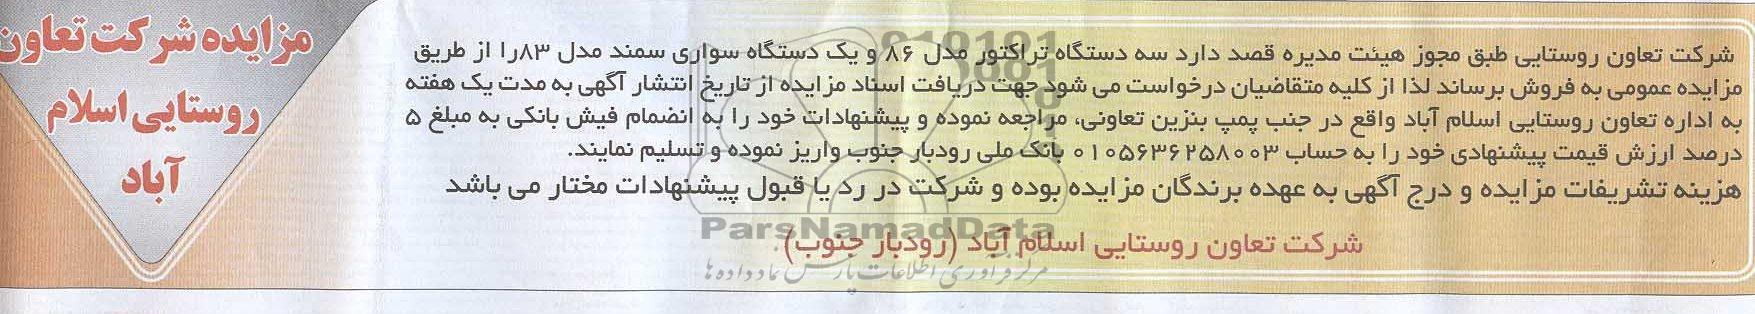 مزایده شرکت تعاون
روستایی اسلام
آباد
شرکت تعاون روستایی طبق مجوز هیئت مدیره قصد دارد سه دستگاه تراکتور مدل ۸۶ و یک دستگاه سواری سمند مدل ۸۳را از طریق
مزایده عمومی به فروش برساند لذا از کلیه متقاضیان درخواست می شود جهت دریافت اسناد مزایده از تاریخ انتشار آگهی به مدت یک هفته
به اداره تعاون روستایی اسلام آباد واقع در جنب پمپ بنزین تعاونی، مراجعه نموده و پیشنهادات خود را به انضمام فیش بانکی به مبلغ ۵
درصد ارزش قیمت پیشنهادی خود را به حساب ۰۱۰۵۶۳۶۲۵۸۰۰۳ بانک ملی رودبار جنوب واریز نموده و تسلیم نمایند.
هزینه تشریفات مزایده و درج آگهی به عهده برندگان مزایده بوده و شرکت در رد یا قبول پیشنهادات مختار می باشد
شرکت تعاون روستایی اسلام آباد (رودبار جنوب)
ParsNamadData
مرکز فرآوری اطلاعات پارس نماد داده ها